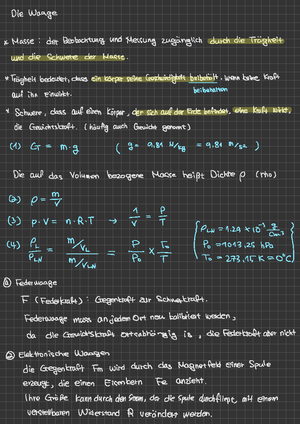 Die Waage
* Masse : der Beobachtung und Messung zugänglich durch die Trägheit
und die Schwere der Masse.
* Trägheit bedeutet, dass ein Körper seine Geschwindigkeit beibehält, wenn keine Kraft
auf ihn einwirkt. beibehalten
* Schwere, dass auf einen Körper, der sich auf der Erde befindet, eine Kraft wirkt,
die Gewichtskraft. (häufig auch Gewicht genannt)
(1) G = m · g ( g = 9.81 N/kg = 9.81 m/s² )
Die auf das Volumen bezogene Masse heißt Dichte ρ (rho)
(2) ρ = m/V
(3) p · V = n · R · T → 1/V = P/T
(4) ρL/ρLN = m/VL / m/VLN = P/P₀ × T₀/T
ρLN = 1.29 × 10⁻³ g/cm³
P₀ = 1013,25 hPa
T₀ = 273,15 K = 0°C
① Federwaage
F (Federkraft) : Gegenkraft zur Schwerkraft.
Federwaage muss an jedem Ort neu kalibriert werden,
da die Gewichtskraft ortsabhängig is , die Federkraft aber nicht
② Elektronische Waagen
die Gegenkraft Fm wird durch das Magnetfeld einer Spule
erzeugt, die einen Eisenkern Fe anzieht.
Ihre Größe kann durch den Strom, der die Spule durchfließt, mit einem
verstellbaren Widerstand R verändert werden.